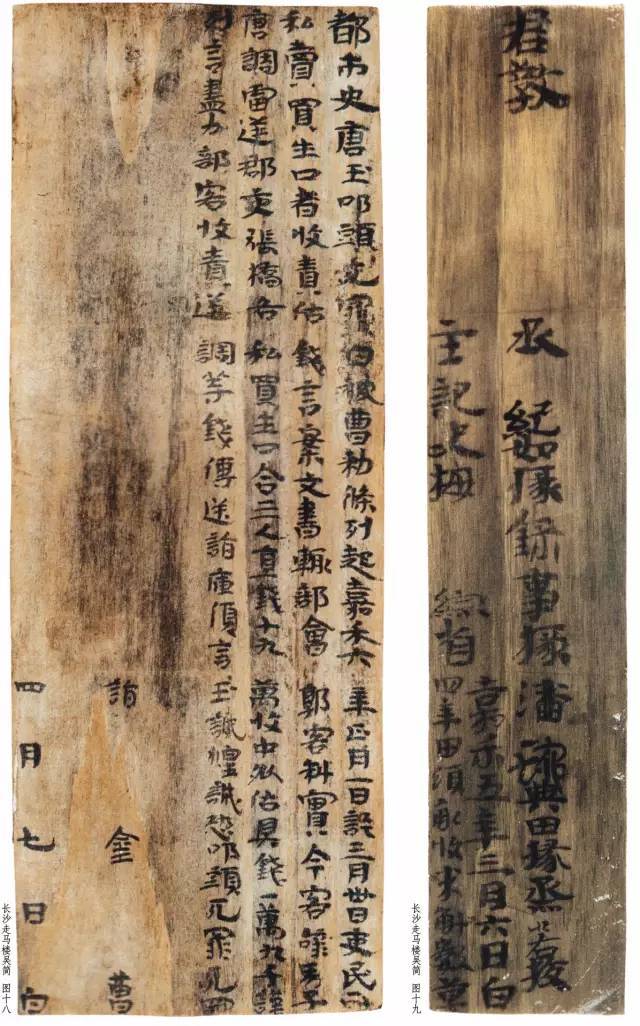 君教
丞 紀如掾錄事掾潘琬典田掾烝 校
主記史梅 綜省 嘉禾五年三月六日白
四年田頃畝收米斛數草
長沙走马楼吴简 图十九
都市史唐玉叩頭死罪白被曹勑條列起嘉禾六年正月一日訖三月卅日吏民所
私賣買生口者收責估錢言案文書輒部會郭客料實今客辭男子
唐調雷逆郡吏張橋各私買生口合三人直錢十九萬收中外估具錢一萬九千謹
列言盡力部客收責逆調等錢傳送詣庫復言玉誠惶誠恐叩頭死罪死罪
詣 金 曹
四月七日白
长沙走马楼吴简 图十八